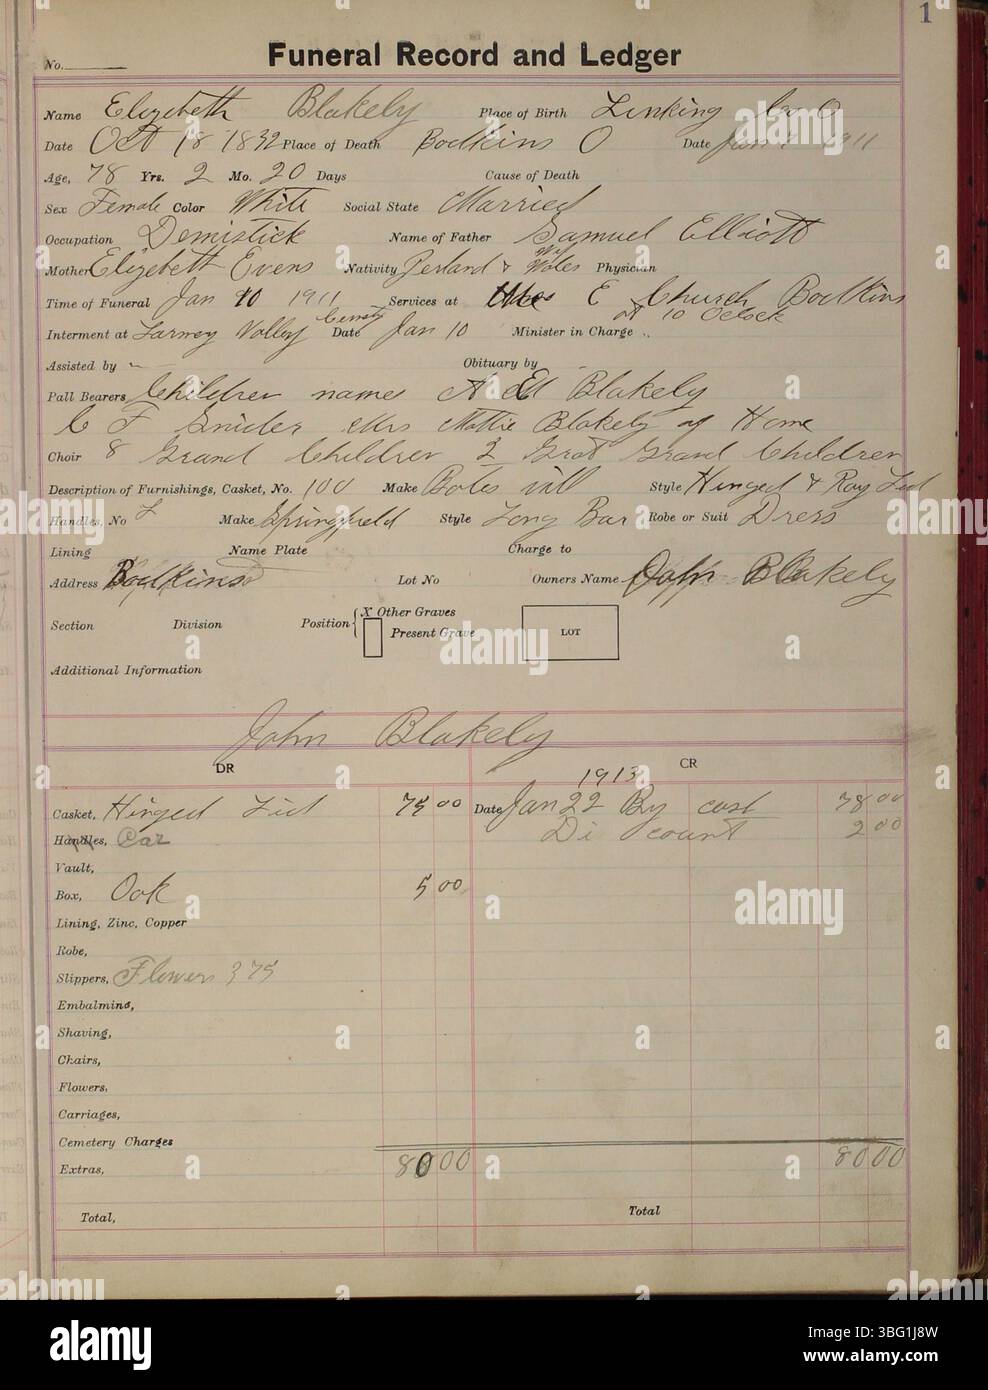 1
Funeral Record and Ledger
No.
Name Elizebeth Blakely Place of Birth Linking Co O
Date Oct 18 1832 Place of Death Botkins O Date Jan 7 1911
Age, 78 Yrs. 2 Mo. 20 Days Cause of Death
Sex Female Color White Social State Married
Occupation Demistick Name of Father Samuel Elliott
Mother Elizebeth Evens Nativity & Wales Physician
Time of Funeral Jan 10 1911 Services at E Church Botkins
at 10 Oclock
Interment at Valley Date Jan 10 Minister in Charge
Assisted by Obituary by
Pall Bearers Children names A M Blakely
C F Snider Mrs Mattie Blakely of Home
Choir 8 Grand Children 2 Grat Grand Children
Description of Furnishings, Casket, No. 100 Make Style Hinged & Lid
Handles, No 2 Make Springfield Style Long Bar Robe or Suit Dress
Lining Name Plate Charge to
Address Botkins Lot No Owners Name John Blakely
Section Division Position X Other Graves
Present Grave
LOT
Additional Information
John Blakely
DR 1913 CR
Casket, Hinged Lid 75 00 Date Jan 22 By cash 78 00
Handles, Car Discount 2 00
Vault,
Box, Oak 5 00
Lining, Zinc, Copper
Robe,
Slippers, Flowers 375
Embalming,
Shaving,
Chairs,
Flowers,
Carriages,
Cemetery Charges
Extras, 80 00 80 00
Total, Total
alamy
Image ID: 3BG1J8W
www.alamy.com